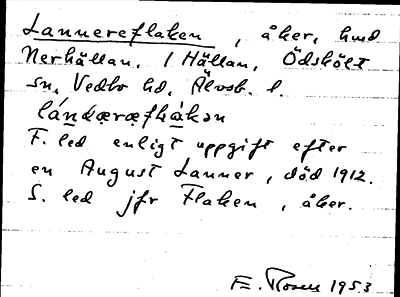 Lannereflaken, åker, hmd
Nerhällan, / Hällan, Ödskölt
sn, Vedbo hd, Älvsb. l.
lánæræflákən
F. led enligt uppgift efter
en August Lanner, död 1912.
S. led jfr Flaken, åker.
E. Rosen 1953